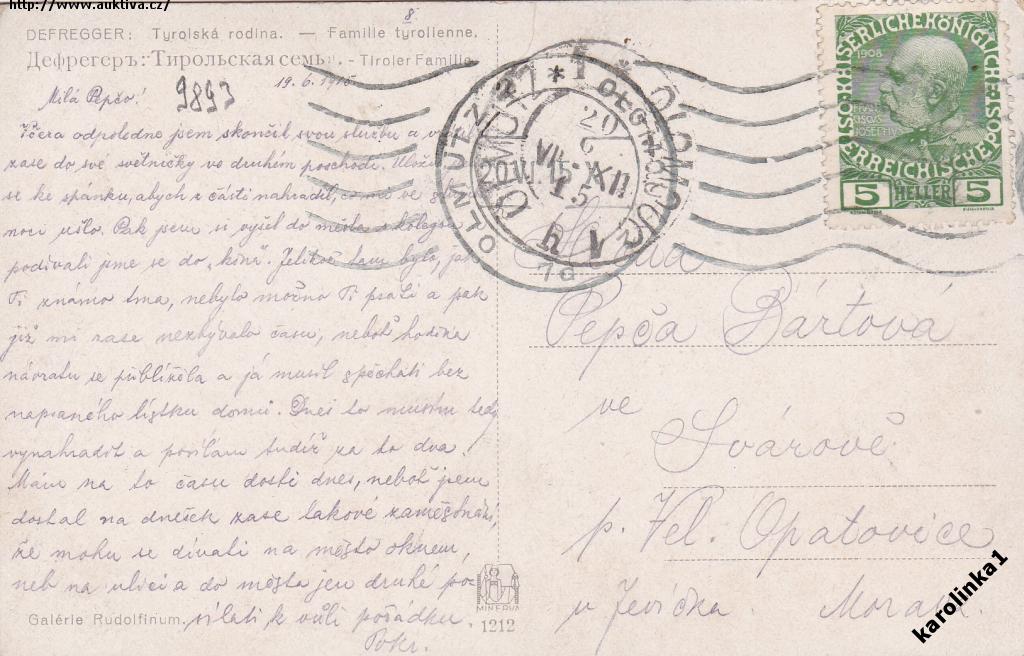 http://www.auktiva.cz/
8.
DEFREGGER: Tyrolská rodina. — Famille tyrolienne.
Дефрегеръ: Тирольская семь. - Tiroler Familie.
19. 6. 1915
9893
Milá Pepčo!
Včera odpoledne jsem skončil svou službu a
zase do své světničky ve druhém poschodí. Ulož
se ke spánku, abych z části nahradil, co mě ve
noci ušlo. Pak jsem si vyšel do města s kolegy
podívali jsme se do „kina". Jelikož tam bylo, jak
Ti známo tma, nebylo možno Ti psáti a pak
již mi zase nezbývalo času, neboť hodina
návratu se přiblížila a já musil spěchati bez
napsaného lístku domů. Dnes to musím tedy
vynahradit a posílám tudíž za to dva.
Mám na to času dosti dnes, neboť jsem
dostal na dnešek zase takové zaměstnání,
že mohu se dívati na město oknem,
neb na ulici a do města jen druhé po
sílati k vůli pořádku.
Pokr.
Galérie Rudolfinum.
MINERVA
1212
OLMÜTZ 1 * OLOMOUC 1
20.VI.15.XII
VII
20
6
15
1d
ÖSTERREICHISCHE POST
KAISERLICHE KÖNIGLICHE
1908
5 HELLER 5
Slečna
Pepča Bártová
ve
Svárově
p. Vel. Opatovice
u Jevíčka. Morava.
karolinka1